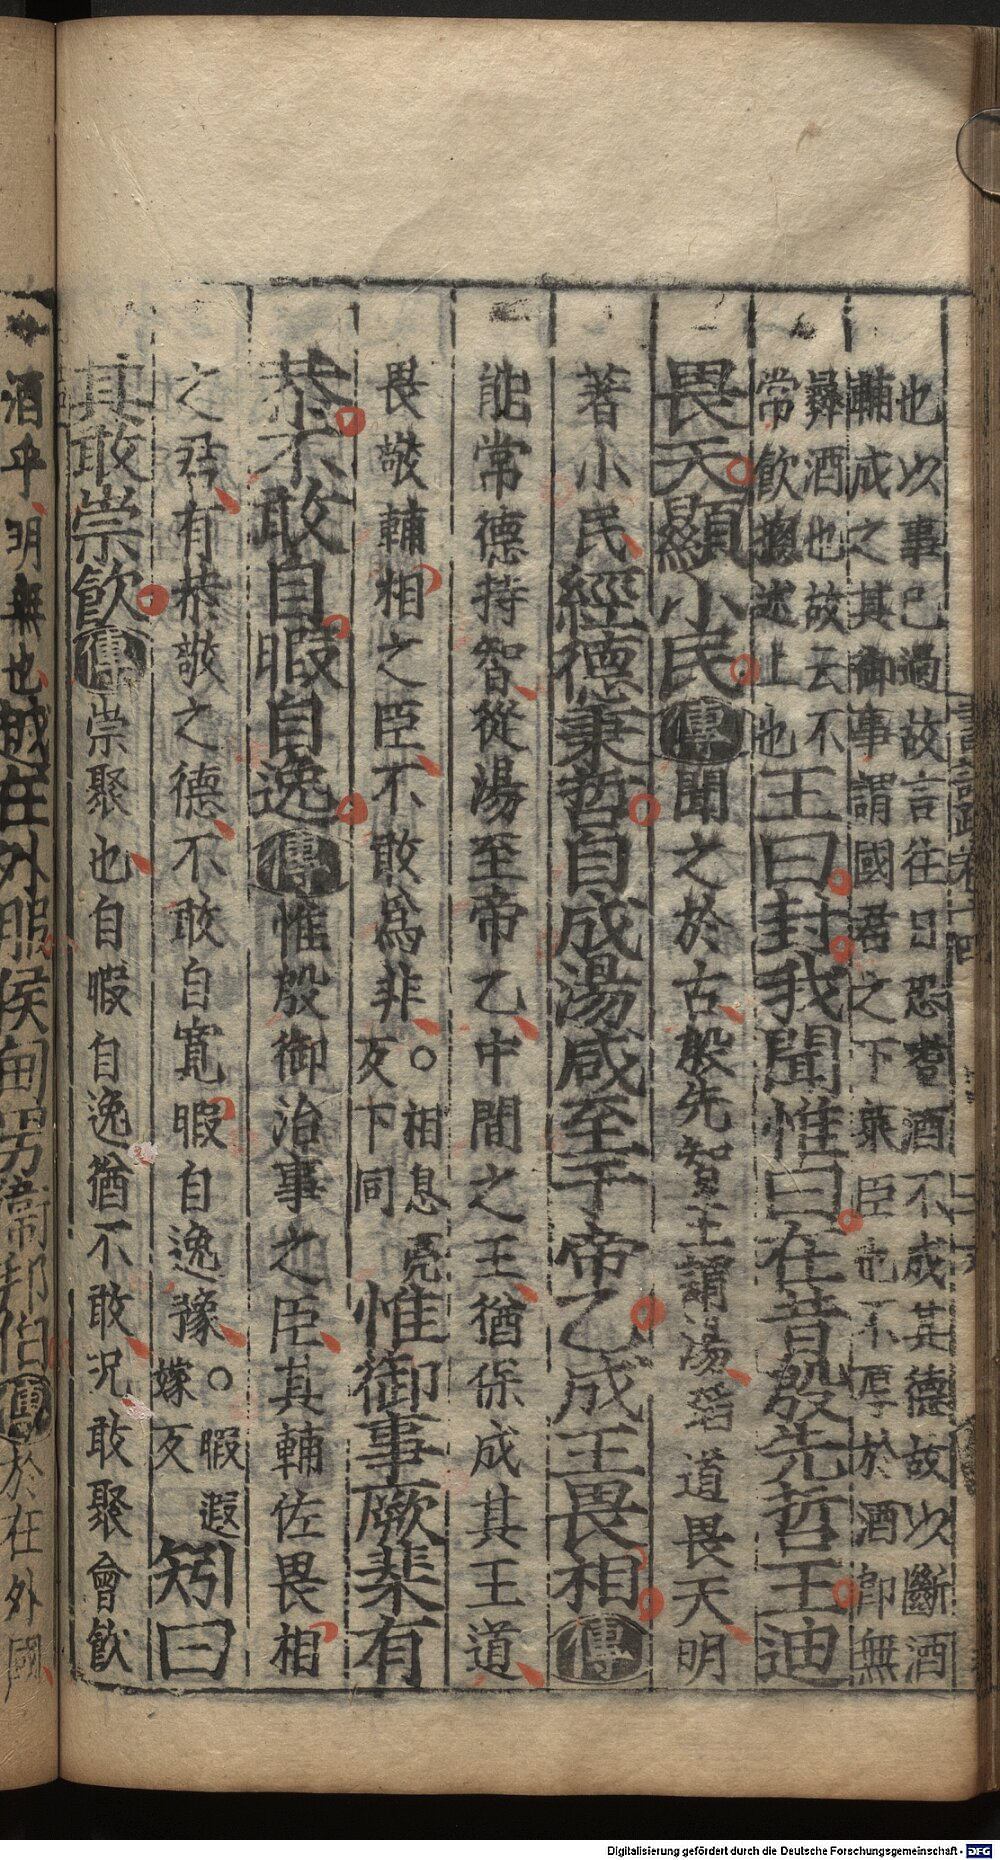 也以事已過故言往日恐嗜酒不成其德故以斷酒
輔成之其御事謂國君之下衆臣也不厚於酒即無
彝酒也故云不
常飲摠述上也
王曰封我聞惟曰在昔殷先哲王迪
畏天顯小民傳聞之於古殷先智王謂湯蹈道畏天明
著小民經德秉哲自成湯咸至于帝乙成王畏相傳
能常德持智從湯至帝乙中間之王猶保成其王道
畏敬輔相之臣不敢為非○相息亮反下同惟御事厥棐有
恭不敢自暇自逸傳惟殷御治事之臣其輔佐畏相
之君有恭敬之德不敢自寬暇自逸豫○暇遐嫁反矧曰
其敢崇飲傳崇聚也自暇自逸猶不敢况敢聚會飲
酒乎明無也越在外服侯甸男衛邦伯傳於在外國
Digitalisierung gefördert durch die Deutsche Forschungsgemeinschaft - DFG